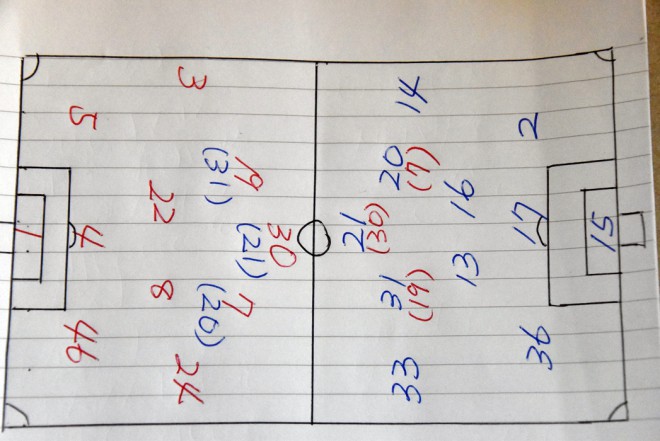 3
5
19
(31)
22
1
4
30
(21)
8
7
(20)
46
24
14
2
20
(7)
16
21
(30)
17
15
13
31
(19)
33
36